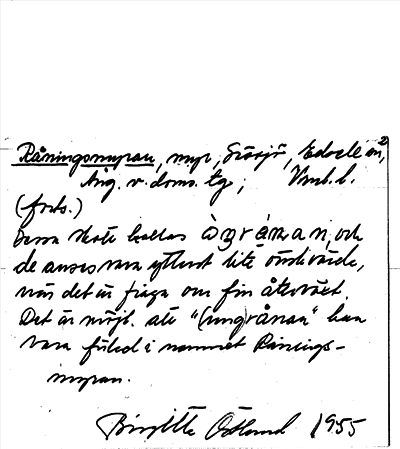 2
Råningsmyran, myr, Svärjö, Edsele sn,
Ång. v. doms. tg; Vnrl. l.
(forts.)
dessa skott kallas ògránan, och
de anses vara ytterst lite önskvärda,
när det är fråga om fin återväxt.
Det är möjl. att "(ung)rånan" kan
vara fallet i namnet Rånings-
myran.
Birgitta Östlund 1955